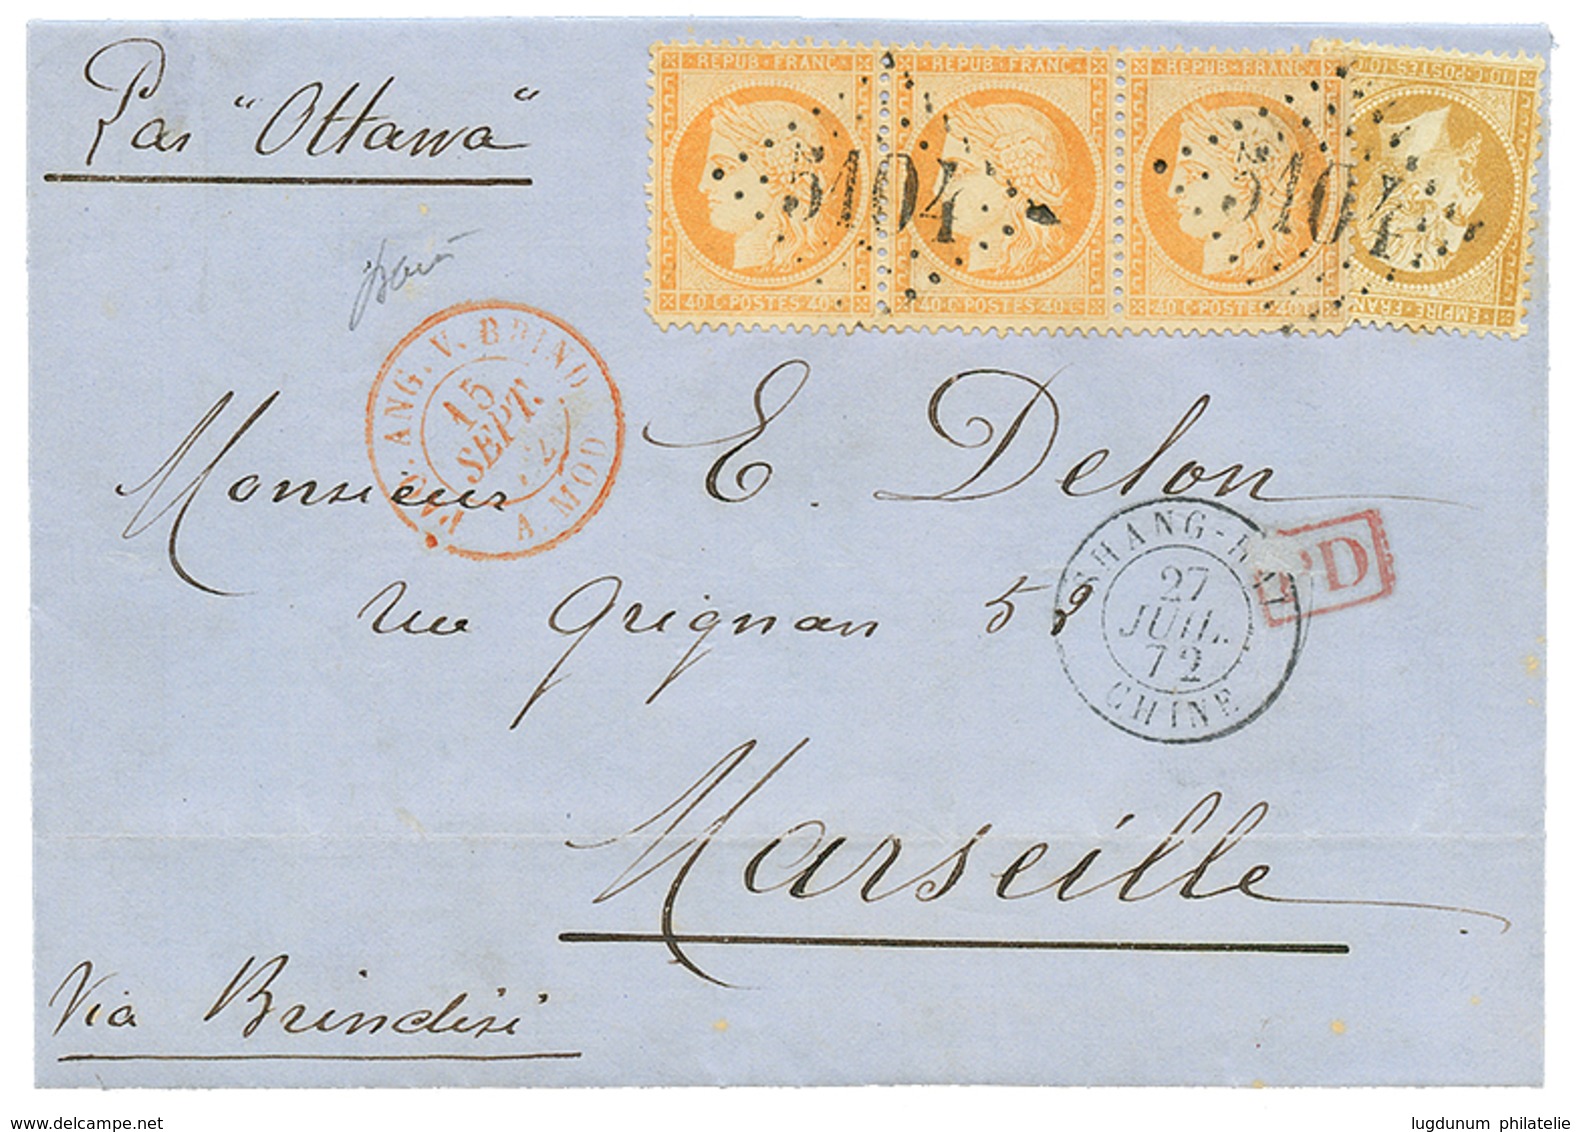 Par "Ottawa"
REPUB FRANC REPUB FRANC REPUB FRANC
10 C POSTES 10 C
5104 5104
40 C POSTES 40 C 40 C POSTES 40 C 40 C POSTES 40 C
EMPIRE FRAN
ANG. V. BRIND
15
SEPT.
A. MOD
Monsieur E. Delon
SHANG-H
PD
27
JUIL.
72
CHINE
rue Grignan 53
Marseille
Via Brindisi
www.delcampe.net
lugdunum philatelie